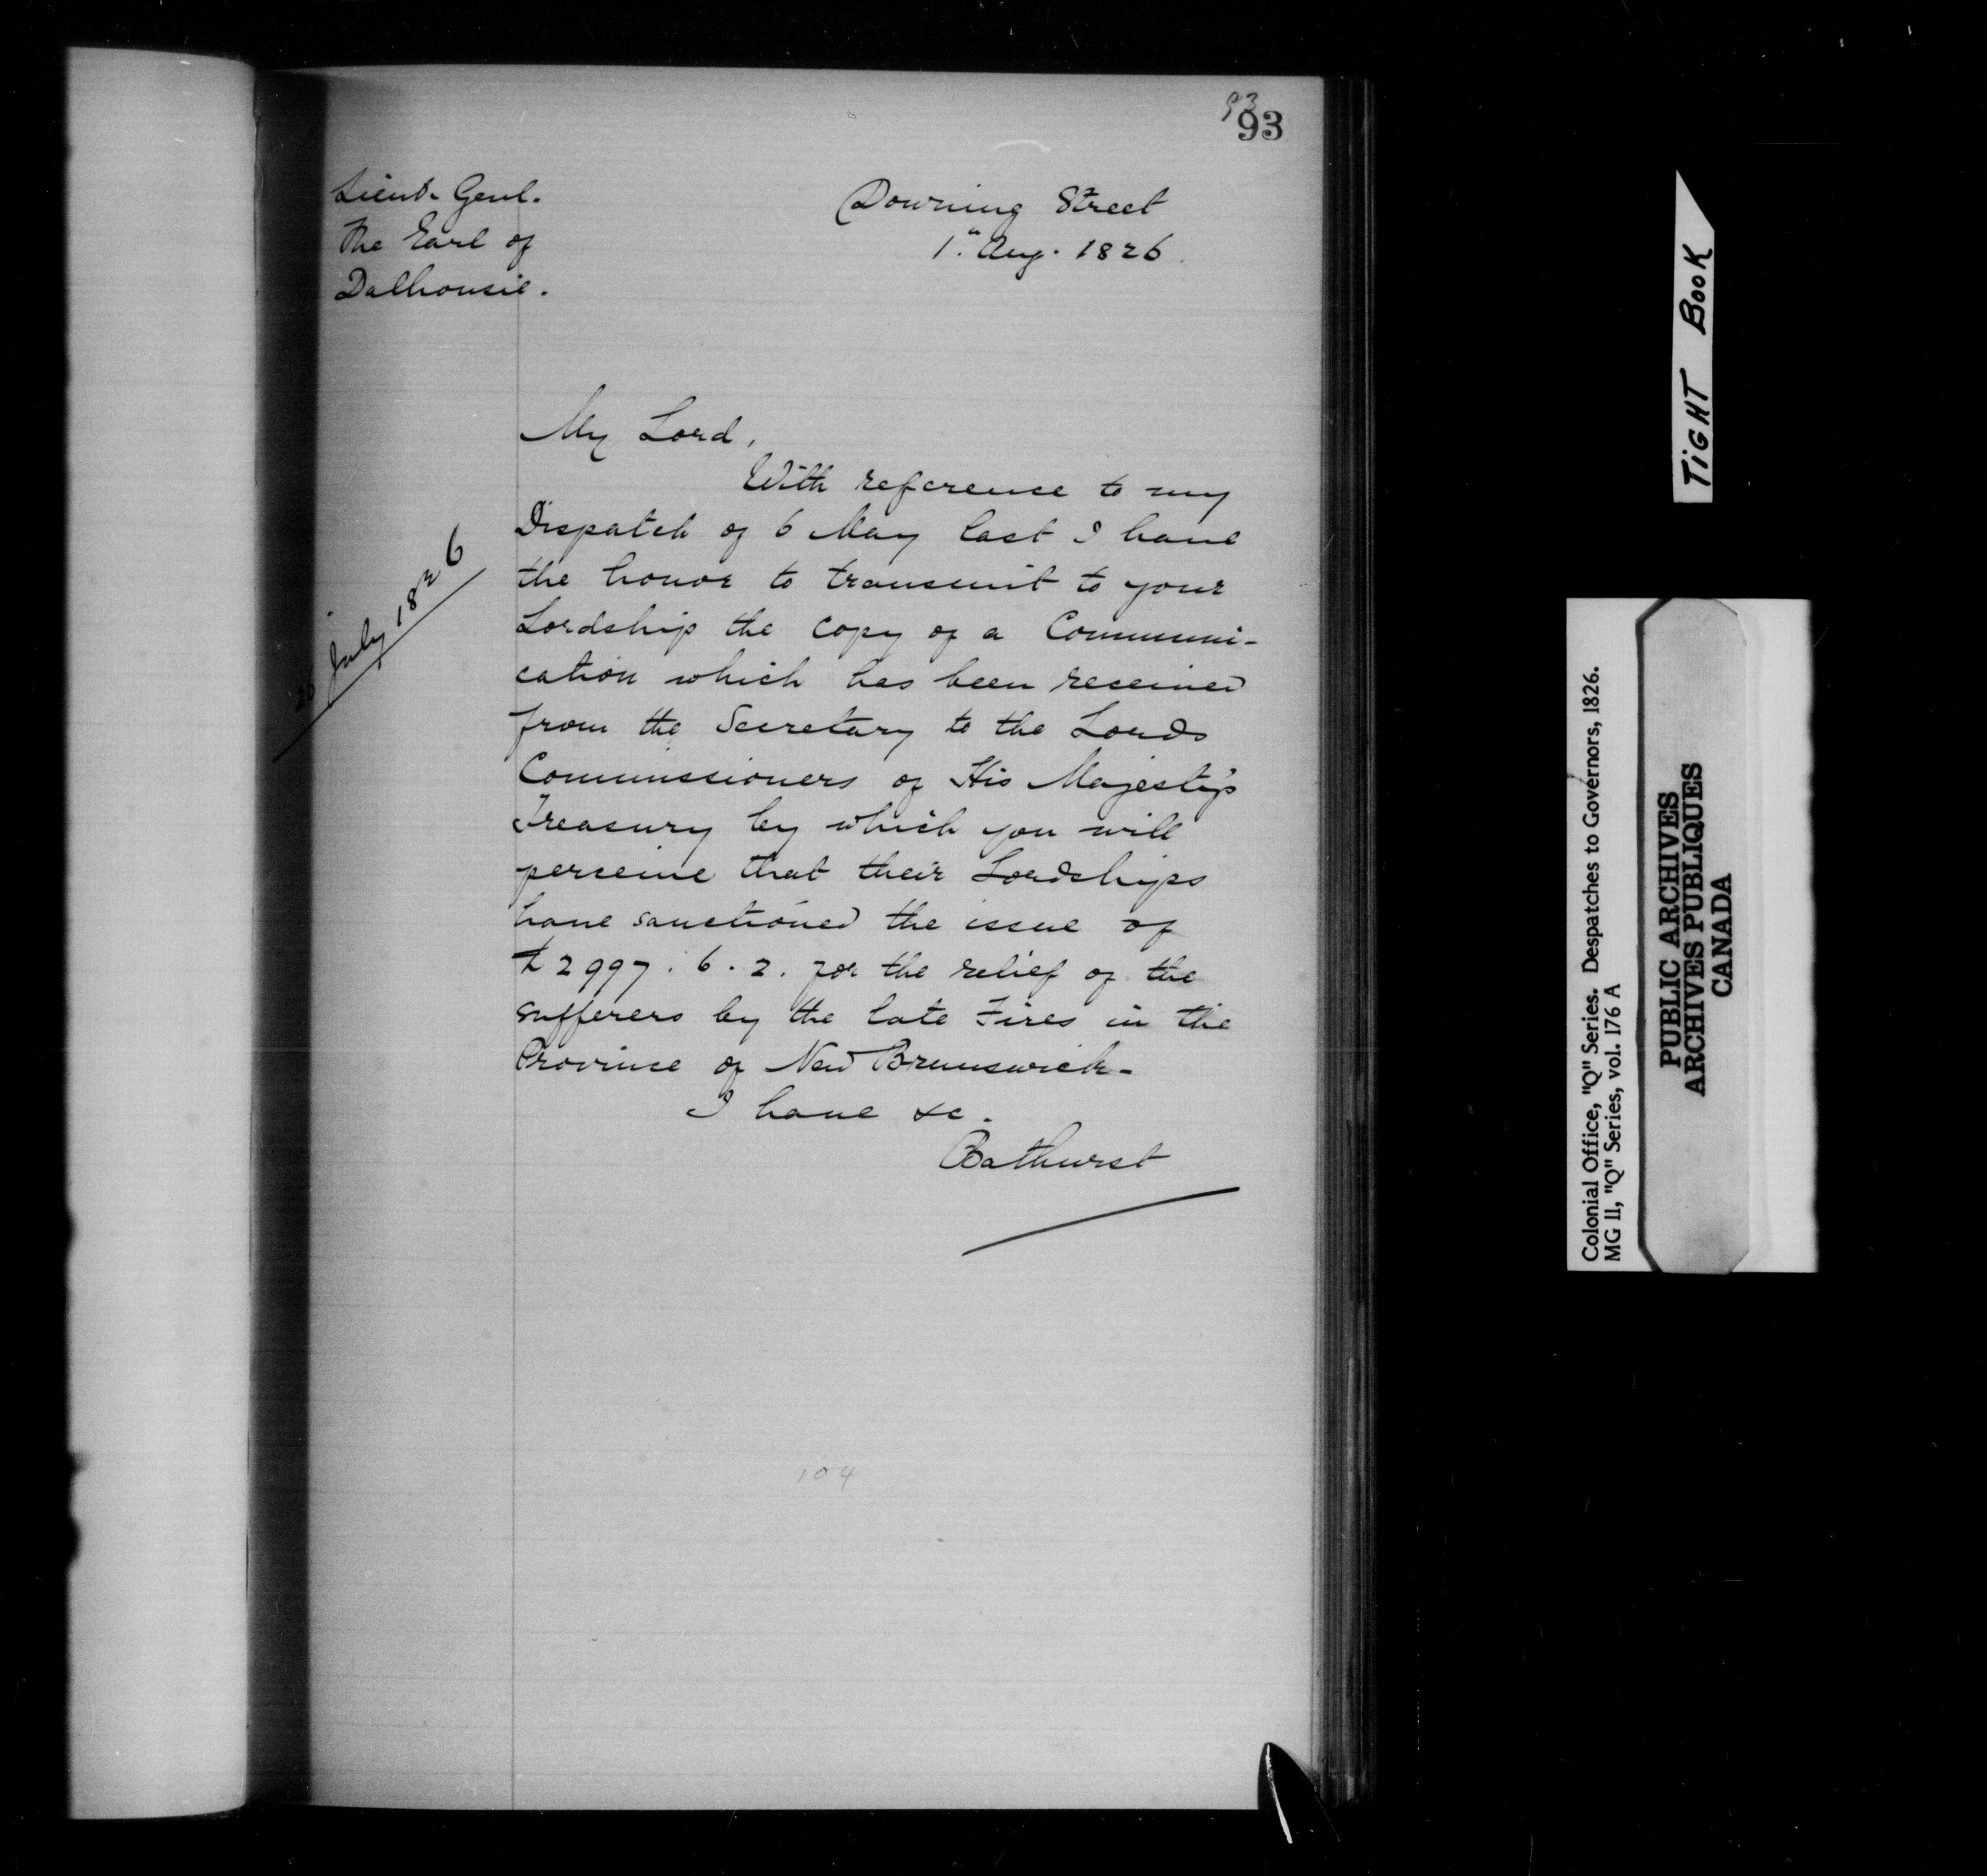 93
93
Lieut. Genl.
The Earl of
Dalhousie.
Downing Street
1st Aug. 1826.
My Lord,
With reference to my
Dispatch of 6 May last I have
the honor to transmit to your
Lordship the copy of a Communi-
cation which has been received
from the Secretary to the Lords
Commissioners of His Majesty's
Treasury by which you will
perceive that their Lordships
have sanctioned the issue of
£2997.6.2. for the relief of the
sufferers by the late Fires in the
Province of New Brunswick-
I have &c.
Bathurst
26 July 1826
104
TIGHT BOOK
Colonial Office, "Q" Series. Despatches to Governors, 1826.
MG 11, "Q" Series, vol. 176 A
PUBLIC ARCHIVES
ARCHIVES PUBLIQUES
CANADA